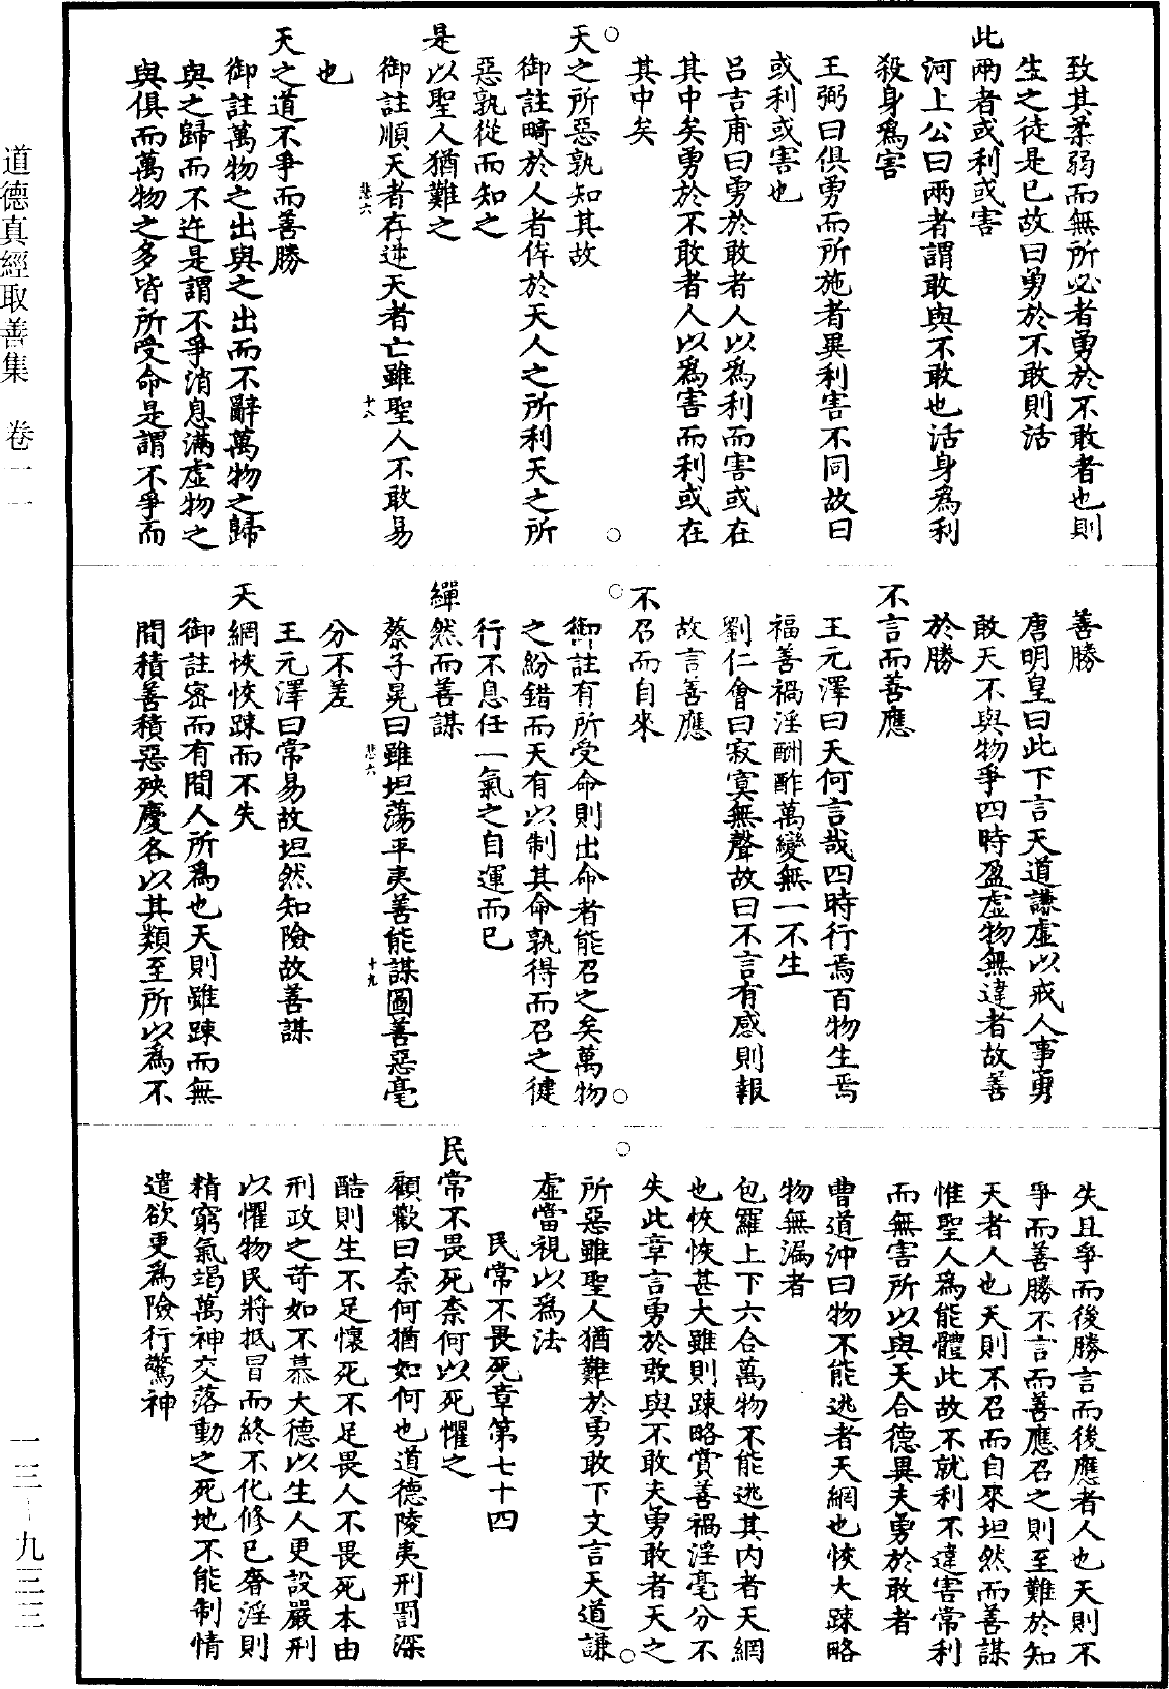 致其柔弱而無所必者勇於不敢者也則
生之徒是已故曰勇於不敢則活
此兩者或利或害
河上公曰兩者謂敢與不敢也活身為利
殺身爲害
王弼曰俱勇而所施者異利害不同故曰
或利或害也
呂吉甫曰勇於敢者人以爲利而害或在
其中矣勇於不敢者人以爲害而利或在
其中矣
天之所惡孰知其故
御註畸於人者侔於天人之所利天之所
惡孰從而知之
是以聖人猶難之
御註順天者存逆天者亡雖聖人不敢易
也
天之道不爭而善勝
御註萬物之出與之出而不辭萬物之歸
與之歸而不迕是謂不爭消息滿虛物之
與俱而萬物之多皆所受命是謂不爭而
悲六
十八
善勝
唐明皇曰此下言天道謙虛以戒人事勇
敢天不與物爭四時盈虛物無違者故善
於勝
不言而善應
王元澤曰天何言哉四時行焉百物生焉
福善禍淫酬酢萬變無一不生
劉仁會曰寂寞無聲故曰不言有感則報
故言善應
不召而自來
御註有所受命則出命者能召之矣萬物
之紛錯而天有以制其命孰得而召之健
行不息任一氣之自運而已
繟然而善謀
蔡子晃曰雖坦蕩平夷善能謀圖善惡毫
分不差
王元澤曰常易故坦然知險故善謀
天網恢恢踈而不失
御註密而有間人所爲也天則雖踈而無
間積善積惡殃慶各以其類至所以爲不
悲六
十九
失且爭而後勝言而後應者人也天則不
爭而善勝不言而善應召之則至難於知
天者人也天則不召而自來坦然而善謀
惟聖人爲能體此故不就利不違害常利
而無害所以與天合德異夫勇於敢者
曹道沖曰物不能逃者天網也恢大踈略
物無漏者
包羅上下六合萬物不能逃其內者天網
也恢恢甚大雖則踈略賞善禍淫毫分不
失此章言勇於敢與不敢夫勇敢者天之
所惡雖聖人猶難於勇敢下文言天道謙
虛當視以爲法
民常不畏死章第七十四
民常不畏死柰何以死懼之
顧歡曰柰何猶如何也道德陵夷刑罰深
酷則生不足懷死不足畏人不畏死本由
刑政之苛如不慕大德以生人更設嚴刑
以懼物民將抵冒而終不化修已奢淫則
精窮氣竭萬神交落動之死地不能制情
遣欲更爲險行驚神
道德真經取善集　卷一一
一三－九三三